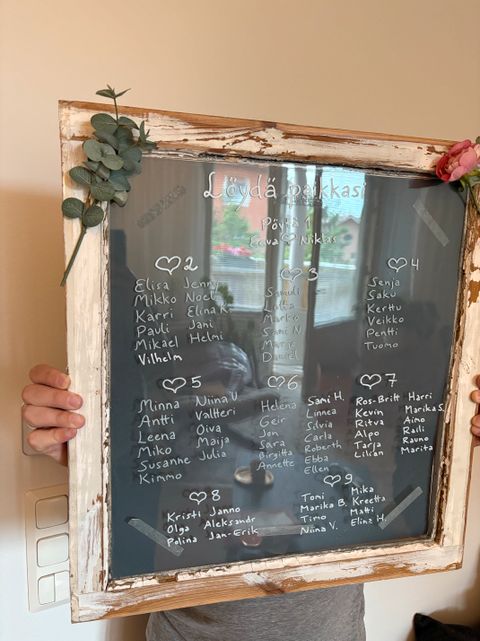 Löydä paikkasi
Pöytä 1
Eeva ♡ Niklas
♡ 2
Elisa Jenny
Mikko Noel
Karri Elina K.
Pauli Jani
Mikael Helmi
Vilhelm
♡ 3
Samuli
Lotta
Marko
Sani N.
Daniel
♡ 4
Senja
Saku
Kerttu
Veikko
Pentti
Tuomo
♡ 5
Minna Niina U.
Antti Valtteri
Leena Oiva
Miko Maija
Susanne Julia
Kimmo
♡ 6
Helena Sami H.
Geir Linnea
Jon Silvia
Sara Carla
Birgitta Roberth
Annette Ebba
Ellen
♡ 7
Ros-Britt Harri
Kevin Marika S.
Ritva Aimo
Alpo Raili
Tarja Rauno
Lilian Marita
♡ 8
Kristi Janno
Olga Aleksandr
Polina Jan-Erik
♡ 9
Tomi Mika
Marika B. Kreetta
Timo Matti
Niina V. Elina H.